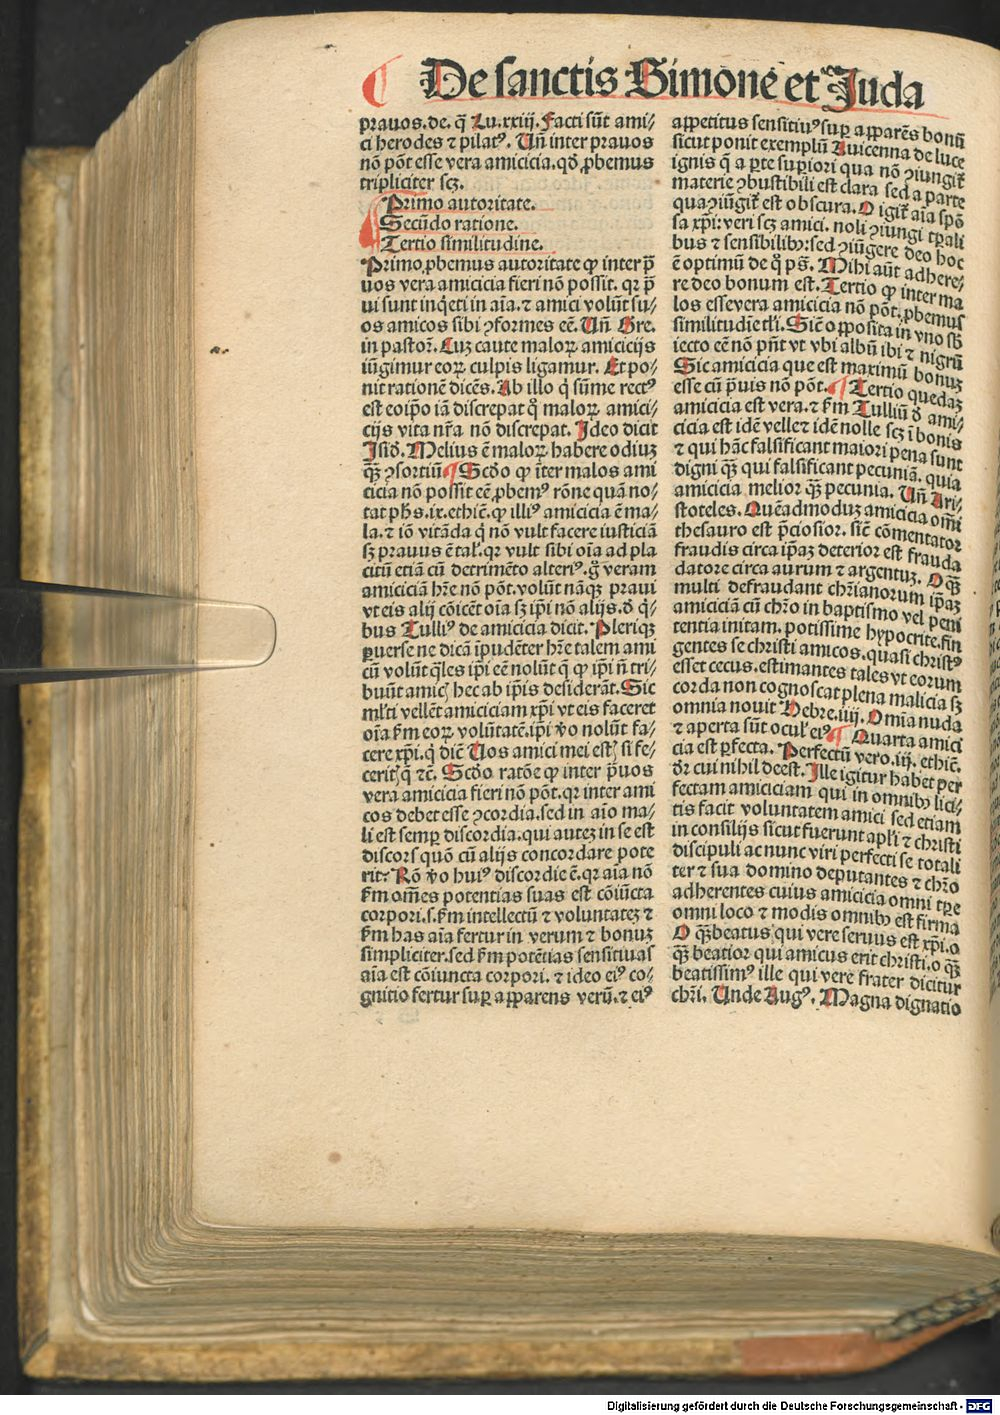 De sanctis Simone et Juda
prauos. de. q̄ Lu. xxiij. Facti sūt ami⸗
ci herodes ⁊ pilatꝰ. Un̄ inter prauos
nō pōt esse vera amicicia. qd̛ ꝓbemus
tripliciter scꝫ.
Primo autoritate.
Secūdo ratione.
Tertio similitudine.
Primo ꝓbemus autoritate ꝙ inter p̄
uos vera amicicia fieri nōn possit. qꝛ p̄
ui sunt inq̇eti in aīa. ⁊ amici volūt su⸗
os amicos sibi ꝯformes eē. Un̄ Gre.
in pastoꝝ. Luꝫ caute maloꝝ amicicijs
iūgimur eoꝝ culpis ligamur. Et po⸗
nit rationē dicēs. Ab illo q̇ sūme rectꝰ
est eoip̄o iā discrepat qͦ maloꝝ amici⸗
cijs vita nr̄a nō discrepat. Ideo dicit
Isid̛. Melius ē maloꝝ habere odiuꝫ
qꝫ̄ ꝯsortiū ¶ Scd̛o ꝙ īter malos ami
cicia nō possit eē ꝓbemꝰ rōne quā no⸗
tat ph̄s. ix. ethic̄. ꝙ illiꝰ amicicia ē ma⸗
la. ⁊ iō vitāda q̇ nō vult facere iusticiā
sꝫ prauus ē tał. qꝛ vult sibi oīa ad pla
citū etiā cū detrimēto alteriꝰ. g̊ veram
amiciciā hr̄e nō pōt. volūt nāqꝫ praui
vt eis alij cōicēt oīa sꝫ ip̄i nō alijs. d̛ q̇⸗
bus Tulliꝰ de amicicia dicit. Pleriqꝫ
ꝑuerse ne dicā īpudēter hr̄e talem ami
cū volūt q̄les ip̄i eē nolūt q̄ ꝙ ip̄i n̄ tri⸗
buūt amic̄ hec ab ip̄is desiderāt. Sic
ml̛ti vellēt amiciciam xp̄i vt eis faceret
oīa ẜm eoꝝ volūtatē. ip̄i v̊o nolūt fa⸗
cere xp̄i. q̇ dic̄ Uos amici mei estꝭ si fe⸗
ceritꝭ q̄ ⁊c̄. Scd̛o ratōe ꝙ inter p̄uos
vera amicicia fieri nō pōt. qꝛ inter ami
cos debet esse ꝯcordia. sed in aīo ma⸗
li est semꝑ discordia. qui auteꝫ in se est
discors quō cū alijs concordare pote
rit. Rō v̊o huiꝰ discordie ē. qꝛ aīa nō
ẜm om̄es potentias suas est cōiūcta
corpori. s. ẜm intellectū ⁊ voluntateꝫ ⁊
ẜm has aīa fertur in verum ⁊ bonuꝫ
simpliciter. sed ẜm potētias sensitiuas
aīa est cōiuncta corpori. ⁊ ideo eiꝰ co⸗
gnitio fertur suꝑ aꝑparens verū. ⁊ eiꝰ
appetitus sensitiuꝰ suꝑ aꝑparēs bonū
sicut ponit exemplū Auicenna de luce
ignis q̄ a ꝑte suꝑiori qua nō ꝯiungit᷑
materie ꝯbustibili est clara sed a parte
qua ꝯiūgit᷑ est obscura. O igit᷑ aīa spō
sa xp̄i: veri scꝫ amici. noli ꝯiungi tꝑali
bus ⁊ sensibilibꝫ: sed ꝯiūgere deo hoc
ē optimū de qͦ ps̄. Mihi aūt adhere⸗
re deo bonum est. Tertio ꝙ inter ma
los esse vera amicicia nō pōt. ꝓbemus
similitudīe tł̄i. Sic̄ oꝑposita in vno sb̛
iecto eē nō pn̄t vt vbi albū ibi ⁊ nigrū
Sic amicicia que est maximū bonuꝫ
esse cū p̄uis nō pōt. ¶ Tertio quedaꝫ
amicicia est vera. ⁊ ẜm Tulliū d̛ ami⸗
cicia est idē velle ⁊ idē nolle scꝫ ī bonis
⁊ qui hāc falsificant maiori pena sunt
digni qꝫ̄ qui falsificant pecuniā. quia
amicicia melior qꝫ̄ pecunia. Un̄ Ari⸗
stoteles. Quēadmoduꝫ amicicia om̄i
thesauro est p̄ciosior. sic̄ cōmentator
fraudis circa ip̄aꝫ deterior est frauda
datore circa aurum ⁊ argentuꝫ. O qꝫ̄
multi defraudant chr̄ianorum ip̄aꝫ
amiciciā cū chr̄o in baptismo vel peni
tentia initam. potissime hypocrite. fin
gentes se christi amicos. quasi christꝰ
esset cecus. estimantes tales vt eorum
corda non cognoscat plena malicia sꝫ
omnia nouit Hebre. iiij. Omīa nuda
⁊ aperta sūt ocul̛ eiꝰ ¶ Quarta amici
cia est ꝑfecta. Perfectū vero. iij. ethic̄.
d̛r cui nihil deest. Ille igitur habet per
fectam amiciciam qui in omnibꝫ lici⸗
tis facit voluntatem amici sed etiam
in consilijs sicut fuerunt apł̄i ⁊ christi
discipuli ac nunc viri perfecti se totali
ter ⁊ sua domino deputantes ⁊ chr̄o
adherentes cuius amicicia omni tꝑe
omni loco ⁊ modis omnibꝫ est firma
O qꝫ̄ beatus qui vere seruus est xp̄i. o
qꝫ̄ beatior qui amicus erit christi. o qꝫ̄
beatissimꝰ ille qui vere frater dicitur
chr̄i. Unde Augꝰ. Magna dignatio
Digitalisierung gefördert durch die Deutsche Forschungsgemeinschaft - DFG